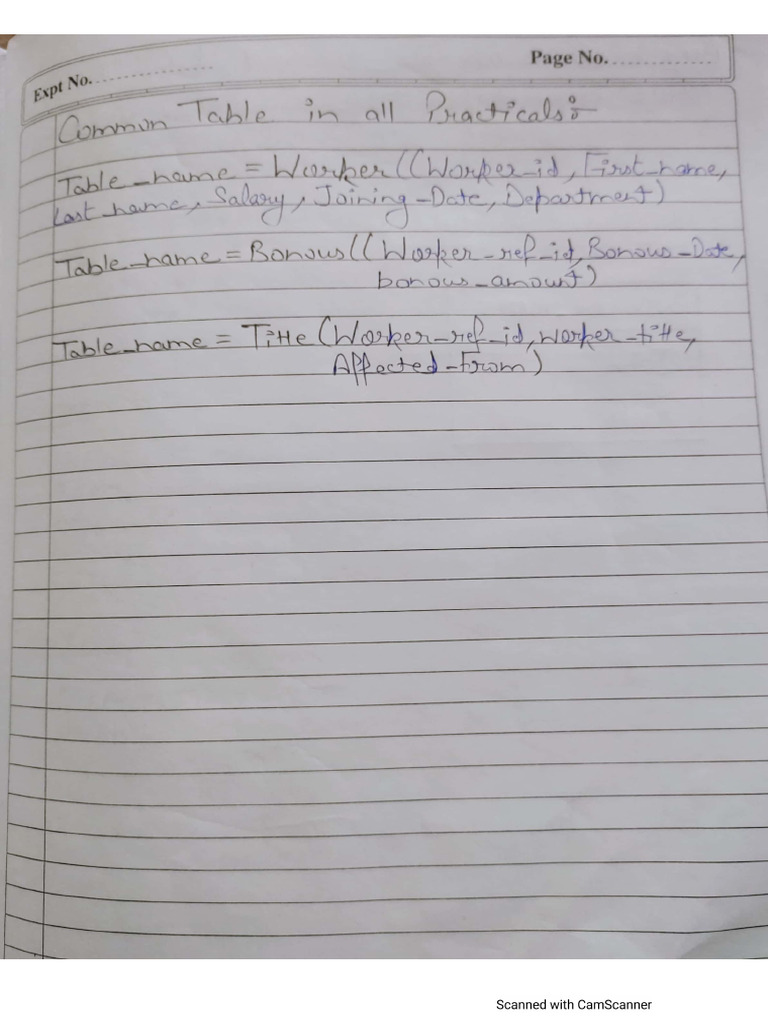 Expt No.
Page No.
Common Table in all Practicals:-
Table_name = Worker((Worker_id, First_name,
Last_name, Salary, Joining-Date, Department)
Table_name = Bonous((Worker-ref-id, Bonous-Date,
bonous_amount)
Table_name = Title (Worker-ref-id, worker-title,
Affected-From)
Scanned with CamScanner